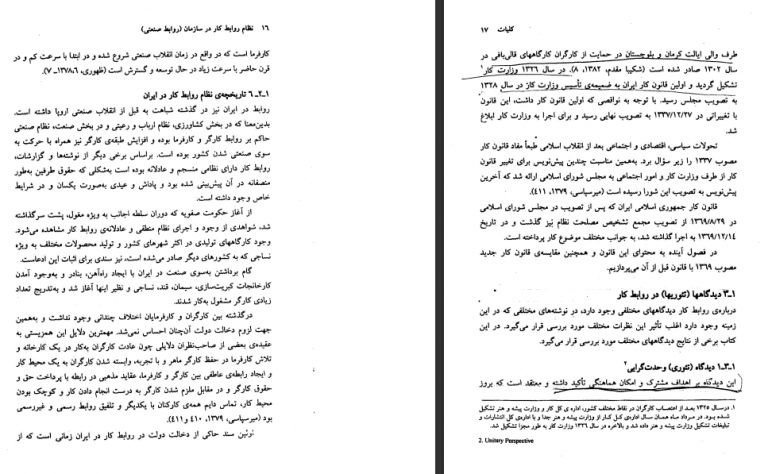 ۱۶ نظام روابط کار در سازمان (روابط صنعتی)
کارفرما است که در واقع در زمان انقلاب صنعتی شروع شده و در ابتدا با سرعت کم و در
قرن حاضر با سرعت زیاد در حال توسعه و گسترش است (ظهوری، ۱۳۷۸،۶ـ ۷).
۱ـ۲ـ ۶ تاریخچه‌ی نظام روابط کار در ایران
روابط در ایران نیز در گذشته شباهت به قبل از انقلاب صنعتی اروپا داشته است.
بدین‌معنا که در بخش کشاورزی، نظام ارباب و رعیتی و در بخش صنعت، نظام صنعتی
حاکم بر روابط کارگر و کارفرما بوده و افزایش طبقه‌ی کارگر نیز همراه با حرکت به
سوی صنعتی شدن کشور بوده است. براساس برخی دیگر از نوشته‌ها و گزارشات،
روابط کار دارای نظامی منسجم و عادلانه بوده است به‌شکلی که حقوق طرفین به‌طور
منصفانه در آن پیش‌بینی شده بود و پاداش و عیدی به‌صورت یکسان و در شرایط
خاص وجود داشته است.
از آغاز حکومت صفویه که دوران سلطه اجانب به ویژه مغول، پشت سرگذاشته
شد، شواهدی از وجود و اجرای نظام منطقی و عادلانه‌ی روابط کار مشاهده می‌شود.
وجود کارگاههای تولیدی در اکثر شهرهای کشور و تولید محصولات مختلف به ویژه
نساجی که به کشورهای دیگر صادر می‌شده است، نیز سندی برای اثبات این ادعاست.
گام برداشتن به‌سوی صنعت در ایران با ایجاد راه‌آهن، بنادر و به‌وجود آمدن
کارخانجات کبریت‌سازی، سیمان، قند، نساجی و نظیر اینها آغاز شد و به‌تدریج تعداد
زیادی کارگر مشغول به‌کار شدند.
درگذشته بین کارگران و کارفرمایان اختلاف چندانی وجود نداشت و به‌همین
جهت لزوم دخالت دولت آن‌چنان احساس نمی‌شد. مهمترین دلایل این همزیستی به
عقیده‌ی بعضی از صاحب‌نظران دلایلی چون عادت کارگران به‌کار در یک کارخانه و
تلاش کارفرما در حفظ کارگر ماهر و با تجربه، وابسته شدن کارگران به یک محیط کار
و ایجاد رابطه‌ی عاطفی بین کارگر و کارفرما، عقاید مذهبی در رابطه با پرداخت حق و
حقوق کارگر و در مقابل ملزم شدن کارگر به درست انجام دادن کار و کوچک بودن
محیط کار، تماس دایم همه‌ی کارکنان با یکدیگر و تلفیق روابط رسمی و غیررسمی
بود (میرسپاسی، ۱۳۷۹، ۴۱۰ و۴۱۱).
نوئین سند حاکی از دخالت دولت در روابط کار در ایران زمانی است که از
کلیات ۱۷
طرف والی ایالت کرمان و بلوچستان در حمایت از کارگران کارگاههای قالی‌بافی در
سال ۱۳۰۲ صادر شده است (شکیبا مقدم، ۱۳۸۲، ۸). در سال ۱۳۲۶ وزارت کار۱
تشکیل گردید و اولین قانون کار ایران به ضمیمه‌ی تأسیس وزارت کار در سال ۱۳۲۸
به تصویب مجلس رسید. با توجه به نواقصی که اولین قانون کار داشت، این قانون
با تغییراتی در ۱۳۳۷/۱۲/۲۷ به تصویب نهایی رسید و برای اجرا به وزارت کار ابلاغ
شد.
تحولات سیاسی، اقتصادی و اجتماعی بعد از انقلاب اسلامی طبعاً مفاد قانون کار
مصوب ۱۳۳۷ را زیر سؤال برد. به‌همین مناسبت چندین پیش‌نویس برای تغییر قانون
کار از طرف وزارت کار و امور اجتماعی به مجلس شورای اسلامی ارائه شد که آخرین
پیش‌نویس به تصویب این شورا رسیده است (میرسپاسی، ۱۳۷۹، ۴۱۱).
قانون کار جمهوری اسلامی ایران که پس از تصویب در مجلس شورای اسلامی
در ۱۳۶۹/۸/۲۹ از تصویب مجمع تشخیص مصلحت نظام نیز گذشت و در تاریخ
۱۳۶۹/۱۲/۱۴ به اجرا گذاشته شد، به جوانب مختلف موضوع کار پرداخته است.
در فصول آینده به محتوای این قانون و همچنین مقایسه‌ی قانون کار جدید
مصوب ۱۳۶۹ با قانون قبل از آن می‌پردازیم.
۱ـ۳ دیدگاهها (تئوریها) در روابط کار
درباره‌ی روابط کار دیدگاههای مختلفی وجود دارد، در نوشته‌های مختلفی که در این
زمینه وجود دارد اغلب تأثیر این نظرات مختلف مورد بررسی قرار می‌گیرد. در این
کتاب برخی از نتایج دیدگاههای مختلف مورد بررسی قرار می‌گیرد.
۱ـ۳ـ۱ دیدگاه (تئوری) وحدت‌گرایی۲
این دیدگاه بر اهداف مشترک و امکان هماهنگی تأکید داشته و معتقد است که بروز
۱. درسال ۱۳۲۵ بعد از اعتصاب کارگران در نقاط مختلف کشور، اداره ی کل کار و وزارت پیشه و هنر تشکیل
شده بود. در مرداد ماه همان سال اداره‌ی کل کار از وزارت پیشه و هنر جدا و با اداره‌ی کل انتشارات و
تبلیغات تشکیل وزارت پیشه و هنر داده شد و بالاخره در سال ۱۳۲۶ وزارت کار به طور مجزا تشکیل شد.
2. Unitary Perspective